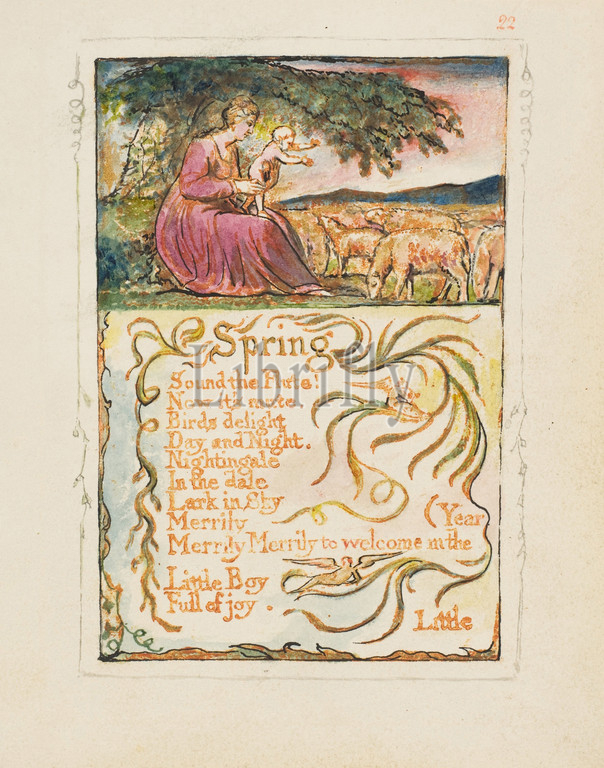 22
Spring
Sound the Flute!
Now it's mute.
Birds delight
Day and Night.
Nightingale
In the dale
Lark in Sky
Merrily
(Year
Merrily Merrily to welcome in the
Little Boy
Full of joy.
Little
Librifly